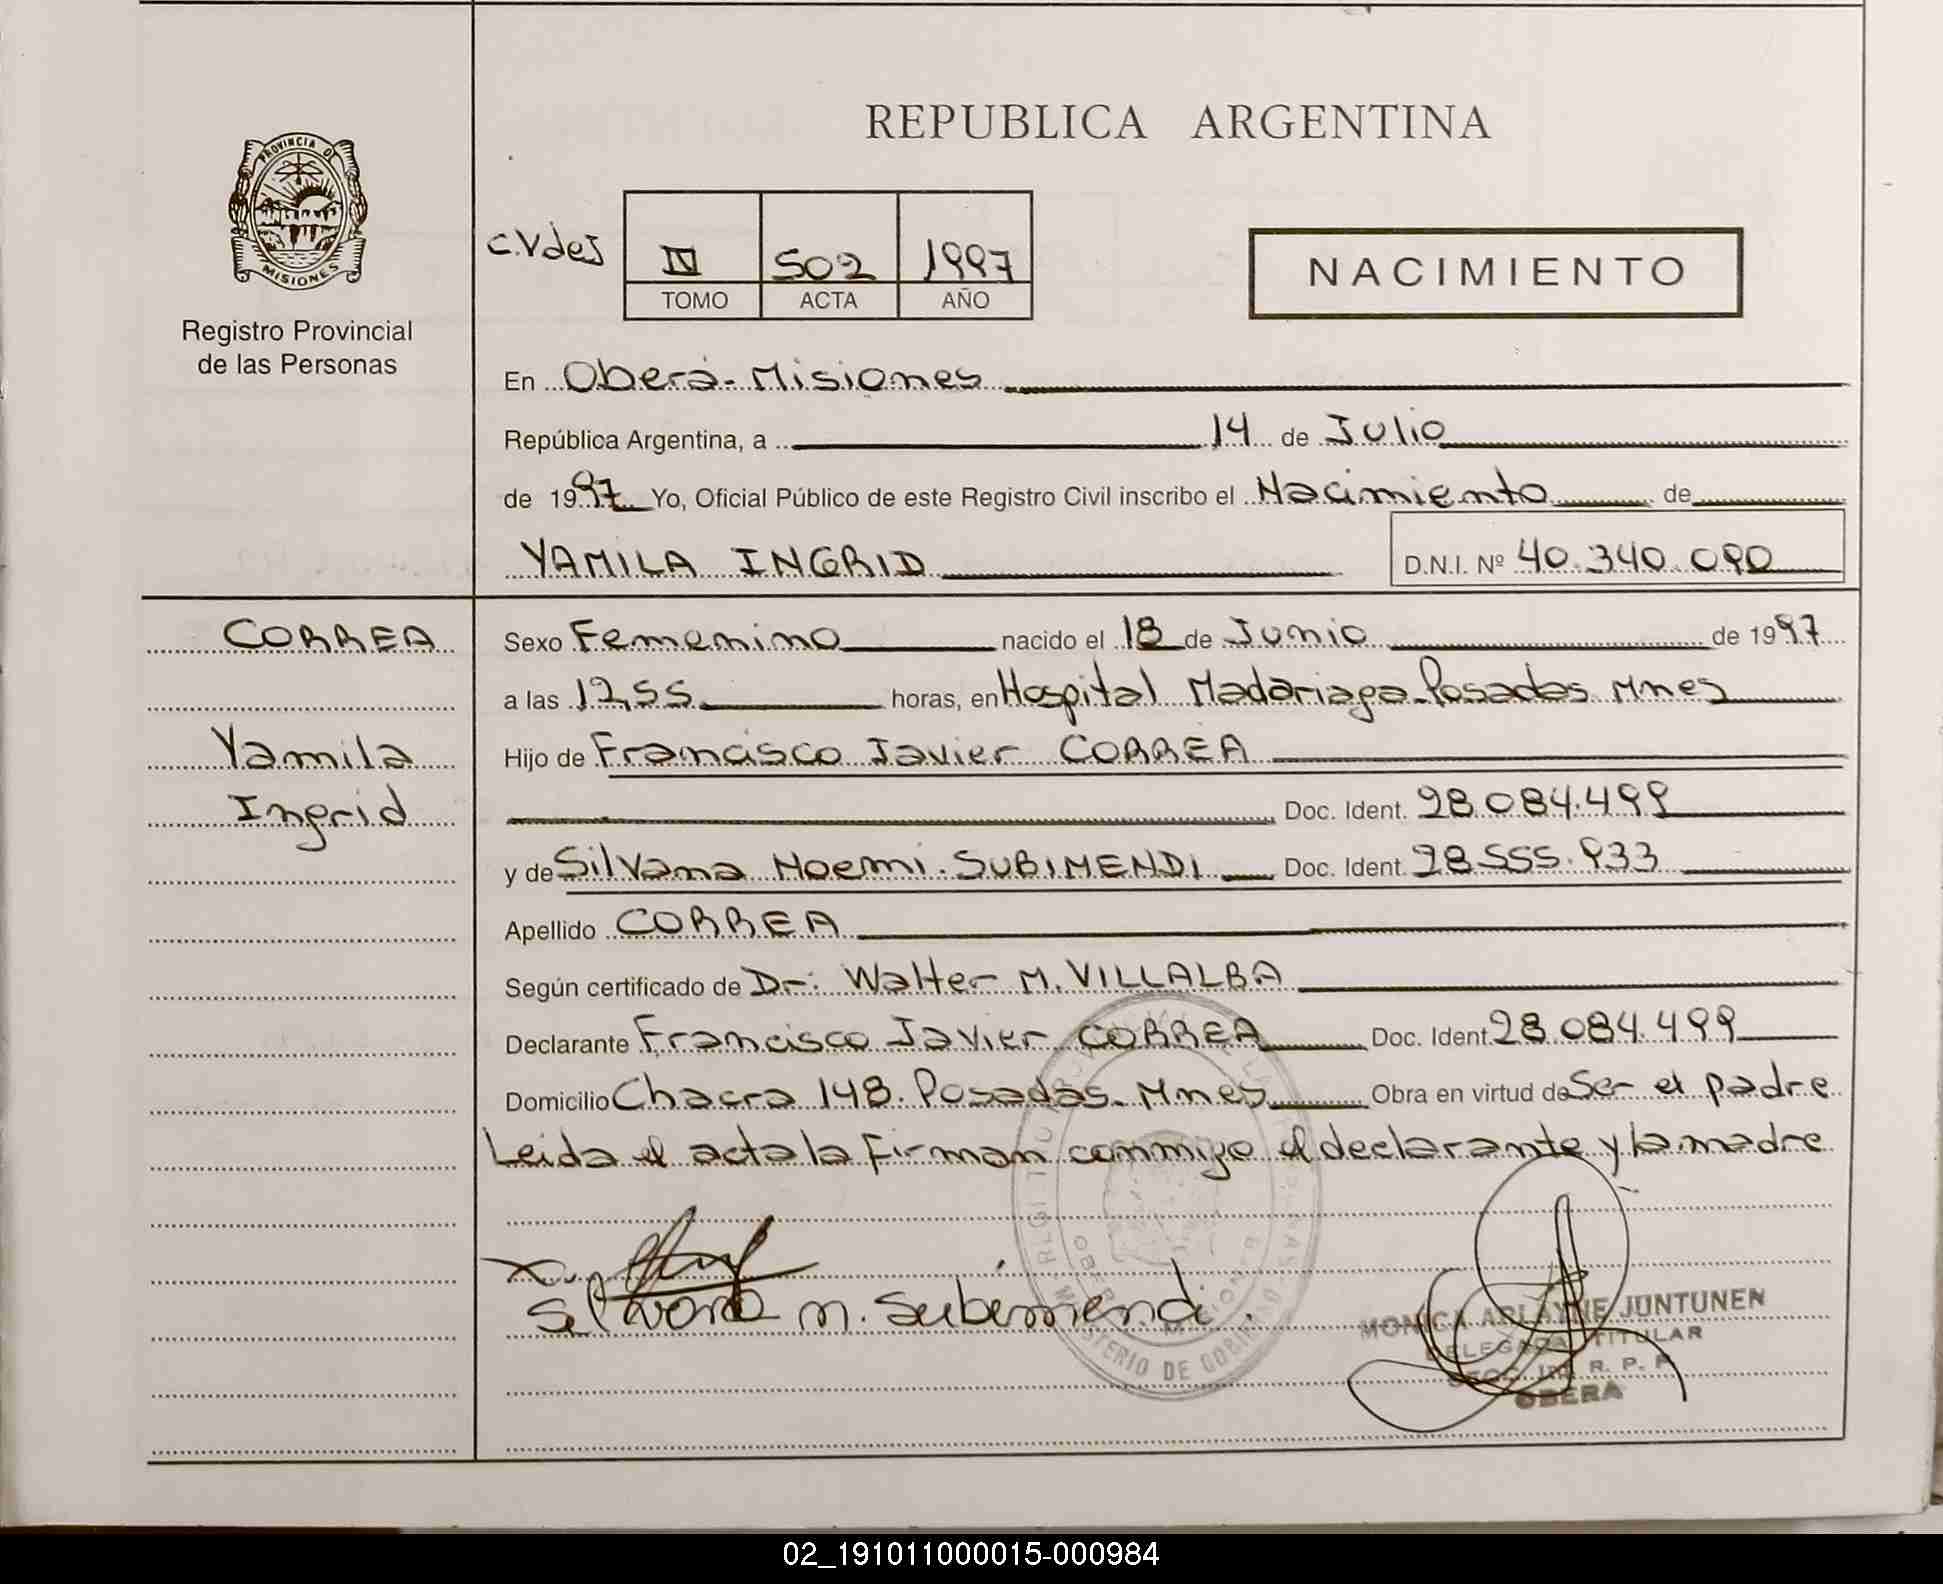 REPUBLICA ARGENTINA
PROVINCIA DE
MISIONES
Registro Provincial
de las Personas
C.VdeS
IV 502 1997
TOMO ACTA AÑO
NACIMIENTO
En Oberá - Misiones
República Argentina, a 14 de Julio
de 1997 Yo, Oficial Público de este Registro Civil inscribo el Nacimiento de
YAMILA INGRID D.N.I. Nº 40.340.090
CORREA
Yamila
Ingrid
Sexo Femenino nacido el 18 de Junio de 1997
a las 12,55 horas, en Hospital Madariaga - Posadas Mnes
Hijo de Francisco Javier CORREA
Doc. Ident. 28.084.499
y de Silvana Noemi. SUBIMENDI Doc. Ident. 28.555.933
Apellido CORREA
Según certificado de Dr: Walter M. VILLALBA
Declarante Francisco Javier CORREA Doc. Ident. 28.084.499
Domicilio Chacra 148. Posadas. Mnes Obra en virtud de Ser el padre
Leida el acta la firman conmigo el declarante y la madre
Silvana n. Subimendi.
MINISTERIO DE GOBIERNO
MONICA ARLAYNE JUNTUNEN
DELEGADA TITULAR
R. P. P.
OBERA
02_191011000015-000984